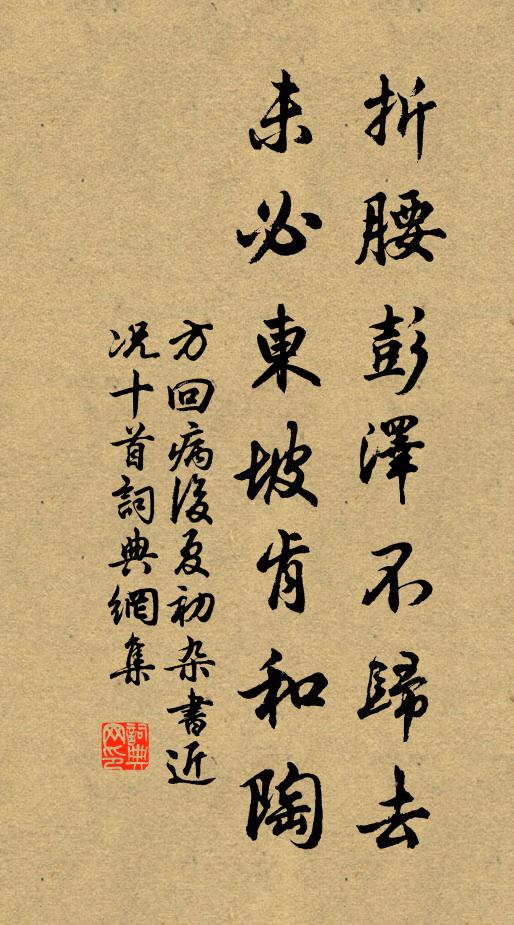 折腰彭澤不歸去
未必東坡肯和陶
方回病後夏初杂書近
况十首詞典網集
詞典網印